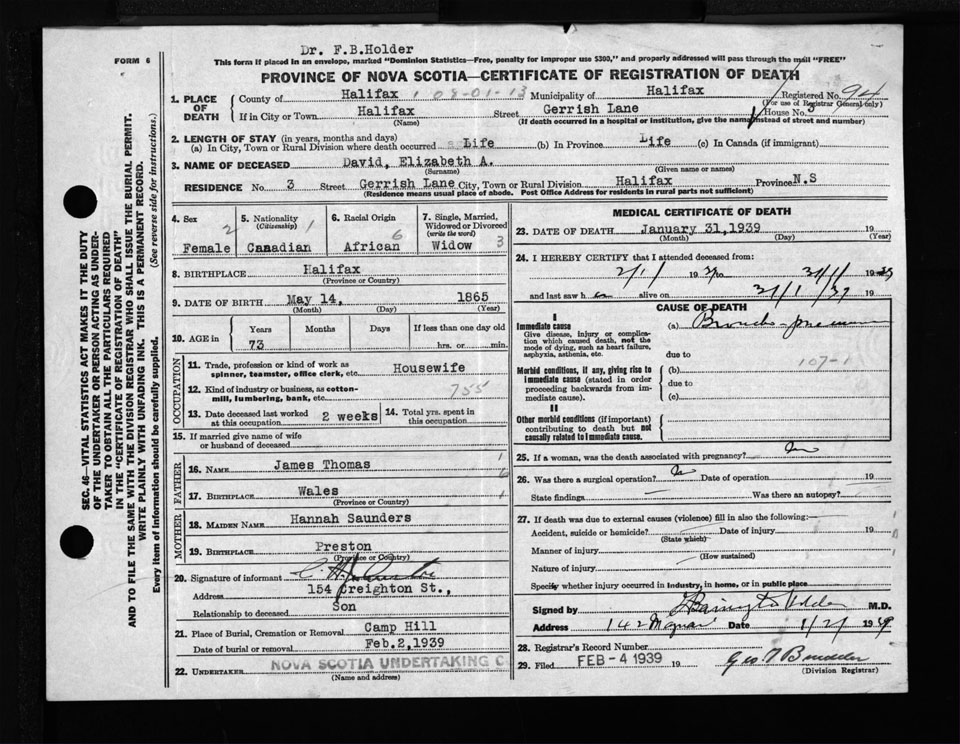 Dr. F.B.Holder
FORM 6
This form if placed in an envelope, marked "Dominion Statistics—Free, penalty for improper use $300," and properly addressed will pass through the mail "FREE"
PROVINCE OF NOVA SCOTIA—CERTIFICATE OF REGISTRATION OF DEATH
1. PLACE OF DEATH
County of Halifax 1 08-01-13 Municipality of Halifax Registered No. 94
(For use of Registrar General only)
If in City or Town Halifax Street Gerrish Lane House No. 3
(Name) (If death occurred in a hospital or institution, give the name instead of street and number)
2. LENGTH OF STAY (in years, months and days)
(a) In City, Town or Rural Division where death occurred Life (b) In Province Life (c) In Canada (if immigrant)
3. NAME OF DECEASED David, Elizabeth A.
(Surname) (Given name or names)
RESIDENCE No. 3 Street Gerrish Lane City, Town or Rural Division Halifax Province N.S
(Residence means usual place of abode. Post Office Address for residents in rural parts not sufficient)
4. Sex 2 Female
5. Nationality (Citizenship) 1 Canadian
6. Racial Origin 6 African
7. Single, Married, Widowed or Divorced (write the word) Widow 3
8. BIRTHPLACE Halifax
(Province or Country)
9. DATE OF BIRTH May 14, 1865
(Month) (Day) (Year)
10. AGE in
Years Months Days If less than one day old
73 hrs. or min.
OCCUPATION
11. Trade, profession or kind of work as spinner, teamster, office clerk, etc. Housewife
12. Kind of industry or business, as cotton-mill, lumbering, bank, etc. 755
13. Date deceased last worked at this occupation 2 weeks
14. Total yrs. spent in this occupation
15. If married give name of wife or husband of deceased
FATHER
16. Name James Thomas
17. Birthplace Wales
(Province or Country)
MOTHER
18. Maiden Name Hannah Saunders
19. Birthplace Preston
(Province or Country)
20. Signature of informant
Address 154 Creighton St.,
Relationship to deceased Son
21. Place of Burial, Cremation or Removal Camp Hill
Date of burial or removal Feb.2,1939
22. UNDERTAKER NOVA SCOTIA UNDERTAKING C
(Name and address)
MEDICAL CERTIFICATE OF DEATH
23. DATE OF DEATH January 31,1939 19
(Month) (Day) (Year)
24. I HEREBY CERTIFY that I attended deceased from:
2/1 19 to 31/1 19
and last saw h er alive on 31/1/39 19
CAUSE OF DEATH
I
Immediate cause
Give disease, injury or complication which caused death, not the mode of dying, such as heart failure, asphyxia, asthenia, etc.
(a) Broncho-pneumonia
due to
Morbid conditions, if any, giving rise to immediate cause (stated in order proceeding backwards from immediate cause).
(b) 107-1
due to
(c)
II
Other morbid conditions (if important) contributing to death but not causally related to immediate cause.
25. If a woman, was the death associated with pregnancy? No
26. Was there a surgical operation? No Date of operation 19
State findings Was there an autopsy?
27. If death was due to external causes (violence) fill in also the following:—
Accident, suicide or homicide? Date of injury 19
(State which)
Manner of injury
(How sustained)
Nature of injury
Specify whether injury occurred in industry, in home, or in public place
Signed by M.D.
Address 142 Date 1/2/ 19 39
28. Registrar's Record Number
29. Filed FEB -4 1939 19
(Division Registrar)
SEC. 46—VITAL STATISTICS ACT MAKES IT THE DUTY
OF THE UNDERTAKER OR PERSON ACTING AS UNDER-
TAKER TO OBTAIN ALL THE PARTICULARS REQUIRED
IN THE "CERTIFICATE OF REGISTRATION OF DEATH"
AND TO FILE THE SAME WITH THE DIVISION REGISTRAR WHO SHALL ISSUE THE BURIAL PERMIT.
WRITE PLAINLY WITH UNFADING INK. THIS IS A PERMANENT RECORD.
Every item of information should be carefully supplied. (See reverse side for instructions.)